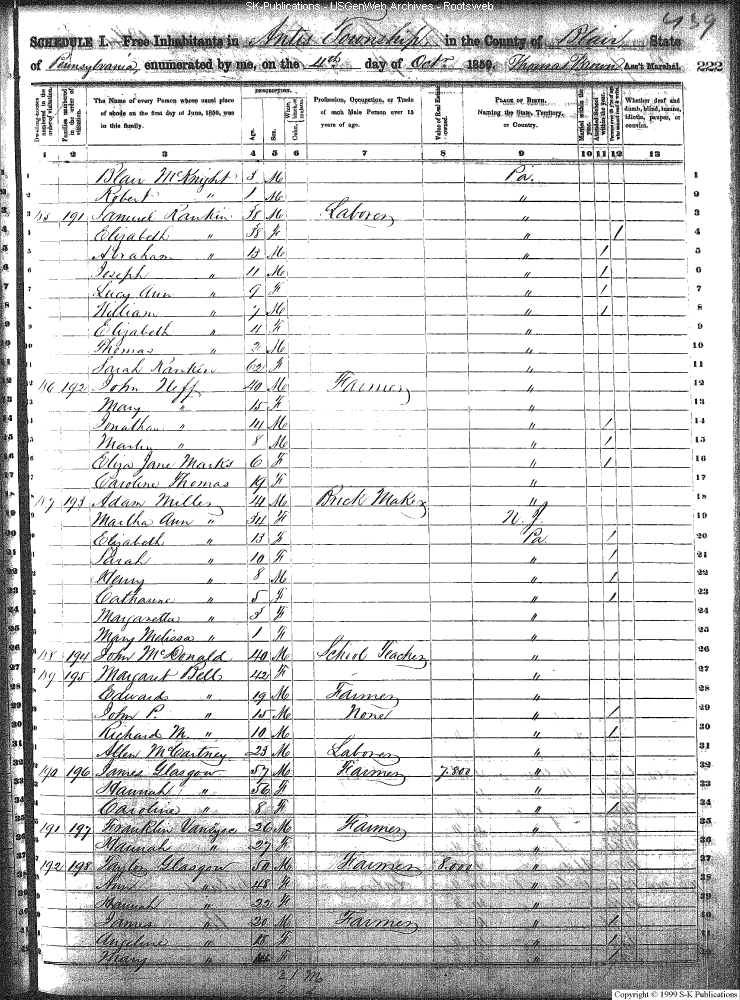 SK-Publications - USGenWeb Archives - Rootsweb
439
SCHEDULE I.—Free Inhabitants in Antis Township in the County of Blair State
of Pennsylvania, enumerated by me, on the 4th day of Octr 1850. Thomas Brown Ass't Marshal. 222
DESCRIPTION.
Dwelling-houses numbered in the order of visitation. Families numbered in the order of visitation. The Name of every Person whose usual place of abode on the first day of June, 1850, was in this family. Age. Sex. White, black, or mulatto. Color Profession, Occupation, or Trade of each Male Person over 15 years of age. Value of Real Estate owned. PLACE OF BIRTH. Naming the State, Territory, or Country. Married within the year. Attended School within the year. Whether deaf and dumb, blind, insane, idiotic, pauper, or convict.
1 2 3 4 5 6 7 8 9 10 11 12 13
1 Blair McKnight 3 M Pa. 1
2 Robert " 1 M " 2
3 191 Samuel Rankin 38 M Laborer " 3
4 Elizabeth " 38 F " / 4
5 Abraham " 13 M " / 5
6 Joseph " 11 M " / 6
7 Lucy Ann " 9 F " / 7
8 William " 7 M " / 8
9 Elizabeth " F " 9
10 Thomas " 2 M " 10
11 Sarah Rankin 62 F " 11
12 192 John Neff 40 M Farmer " 12
13 Mary " 15 F " 13
14 Jonathan " 14 M " / 14
15 " 8 M " / 15
16 Eliza Jane Marks 6 F " / 16
17 Caroline Thomas 19 F " 17
18 193 Adam Miller M Brick Maker " 18
19 Martha Ann " 34 F N.J. 19
20 Elizabeth " 13 F Pa / 20
21 Sarah " 10 F " / 21
22 Henry " 8 M " / 22
23 Catharine " 5 F " / 23
24 Margaretta " 3 F " 24
25 Mary Melissa " 1 F " 25
26 194 John McDonald 40 M School Teacher " 26
27 195 Margaret Bell 42 F " 27
28 Edward " 19 M Farmer " 28
29 John P. " 15 M None " / 29
30 Richard M. " 10 M " / 30
31 Allen McCartney 23 M Laborer " 31
32 190 196 James Glasgow 57 M Farmer 7.800 " 32
33 Hannah " 56 F " 33
34 Caroline " 8 F " / 34
35 191 197 Franklin 26 M Farmer " 35
36 Hannah " 27 F " 36
37 192 198 Glasgow 50 M Farmer 8.000 " 37
38 Ann " 48 F "
39 Hannah " 22 F "
40 James " 20 M Farmer " / 40
41 Angeline " 18 F " / 41
" F " /
21 M
Copyright © 1999 S-K Publications